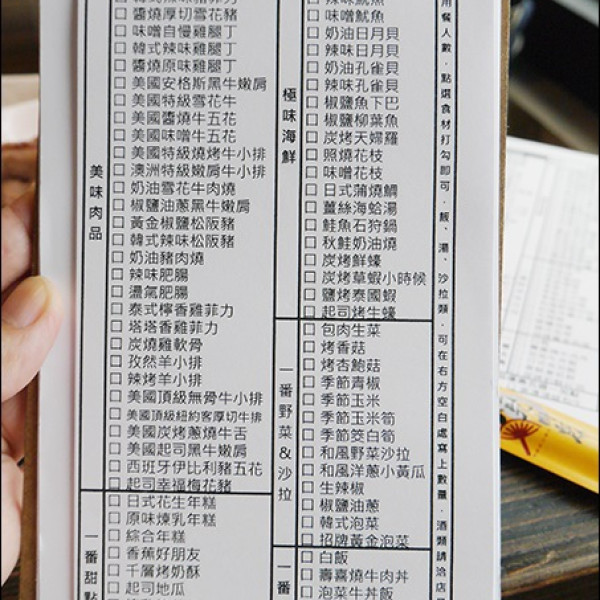 美味肉品
醬燒厚切雪花豬
味噌自慢雞腿丁
韓式辣味雞腿丁
醬燒原味雞腿丁
美國安格斯黑牛嫩肩
美國特級雪花牛
美國醬燒牛五花
美國味噌牛五花
美國特級燒烤牛小排
澳洲特級嫩肩牛小排
奶油雪花牛肉燒
椒鹽油蔥黑牛嫩肩
黃金椒鹽松阪豬
韓式辣味松阪豬
奶油豬肉燒
辣味肥腸
鹽氣肥腸
泰式檸香雞菲力
塔塔香雞菲力
炭燒雞軟骨
孜然羊小排
辣烤羊小排
美國頂級無骨牛小排
美國頂級紐約客厚切牛排
美國炭烤蔥燒牛舌
美國起司黑牛嫩肩
西班牙伊比利豬五花
起司幸福梅花豬
一番甜點
日式花生年糕
原味煉乳年糕
綜合年糕
香蕉好朋友
千層烤奶酥
起司地瓜
極味海鮮
辣味魷魚
味噌魷魚
奶油日月貝
辣味日月貝
奶油孔雀貝
辣味孔雀貝
椒鹽魚下巴
椒鹽柳葉魚
炭烤天婦羅
照燒花枝
味噌花枝
日式蒲燒鯛
薑絲海蛤湯
鮭魚石狩鍋
秋鮭奶油燒
炭烤鮮蠔
炭烤草蝦小時候
鹽烤泰國蝦
起司烤生蠔
一番野菜&沙拉
包肉生菜
烤香菇
烤杏鮑菇
季節青椒
季節玉米
季節玉米筍
季節筊白筍
和風野菜沙拉
和風洋蔥小黃瓜
生辣椒
椒鹽油蔥
韓式泡菜
招牌黃金泡菜
一番
白飯
壽喜燒牛肉丼
泡菜牛丼飯
用餐人數，點選食材打勾即可，飯、湯、沙拉類，可在右方空白處寫上數量，酒類請洽店